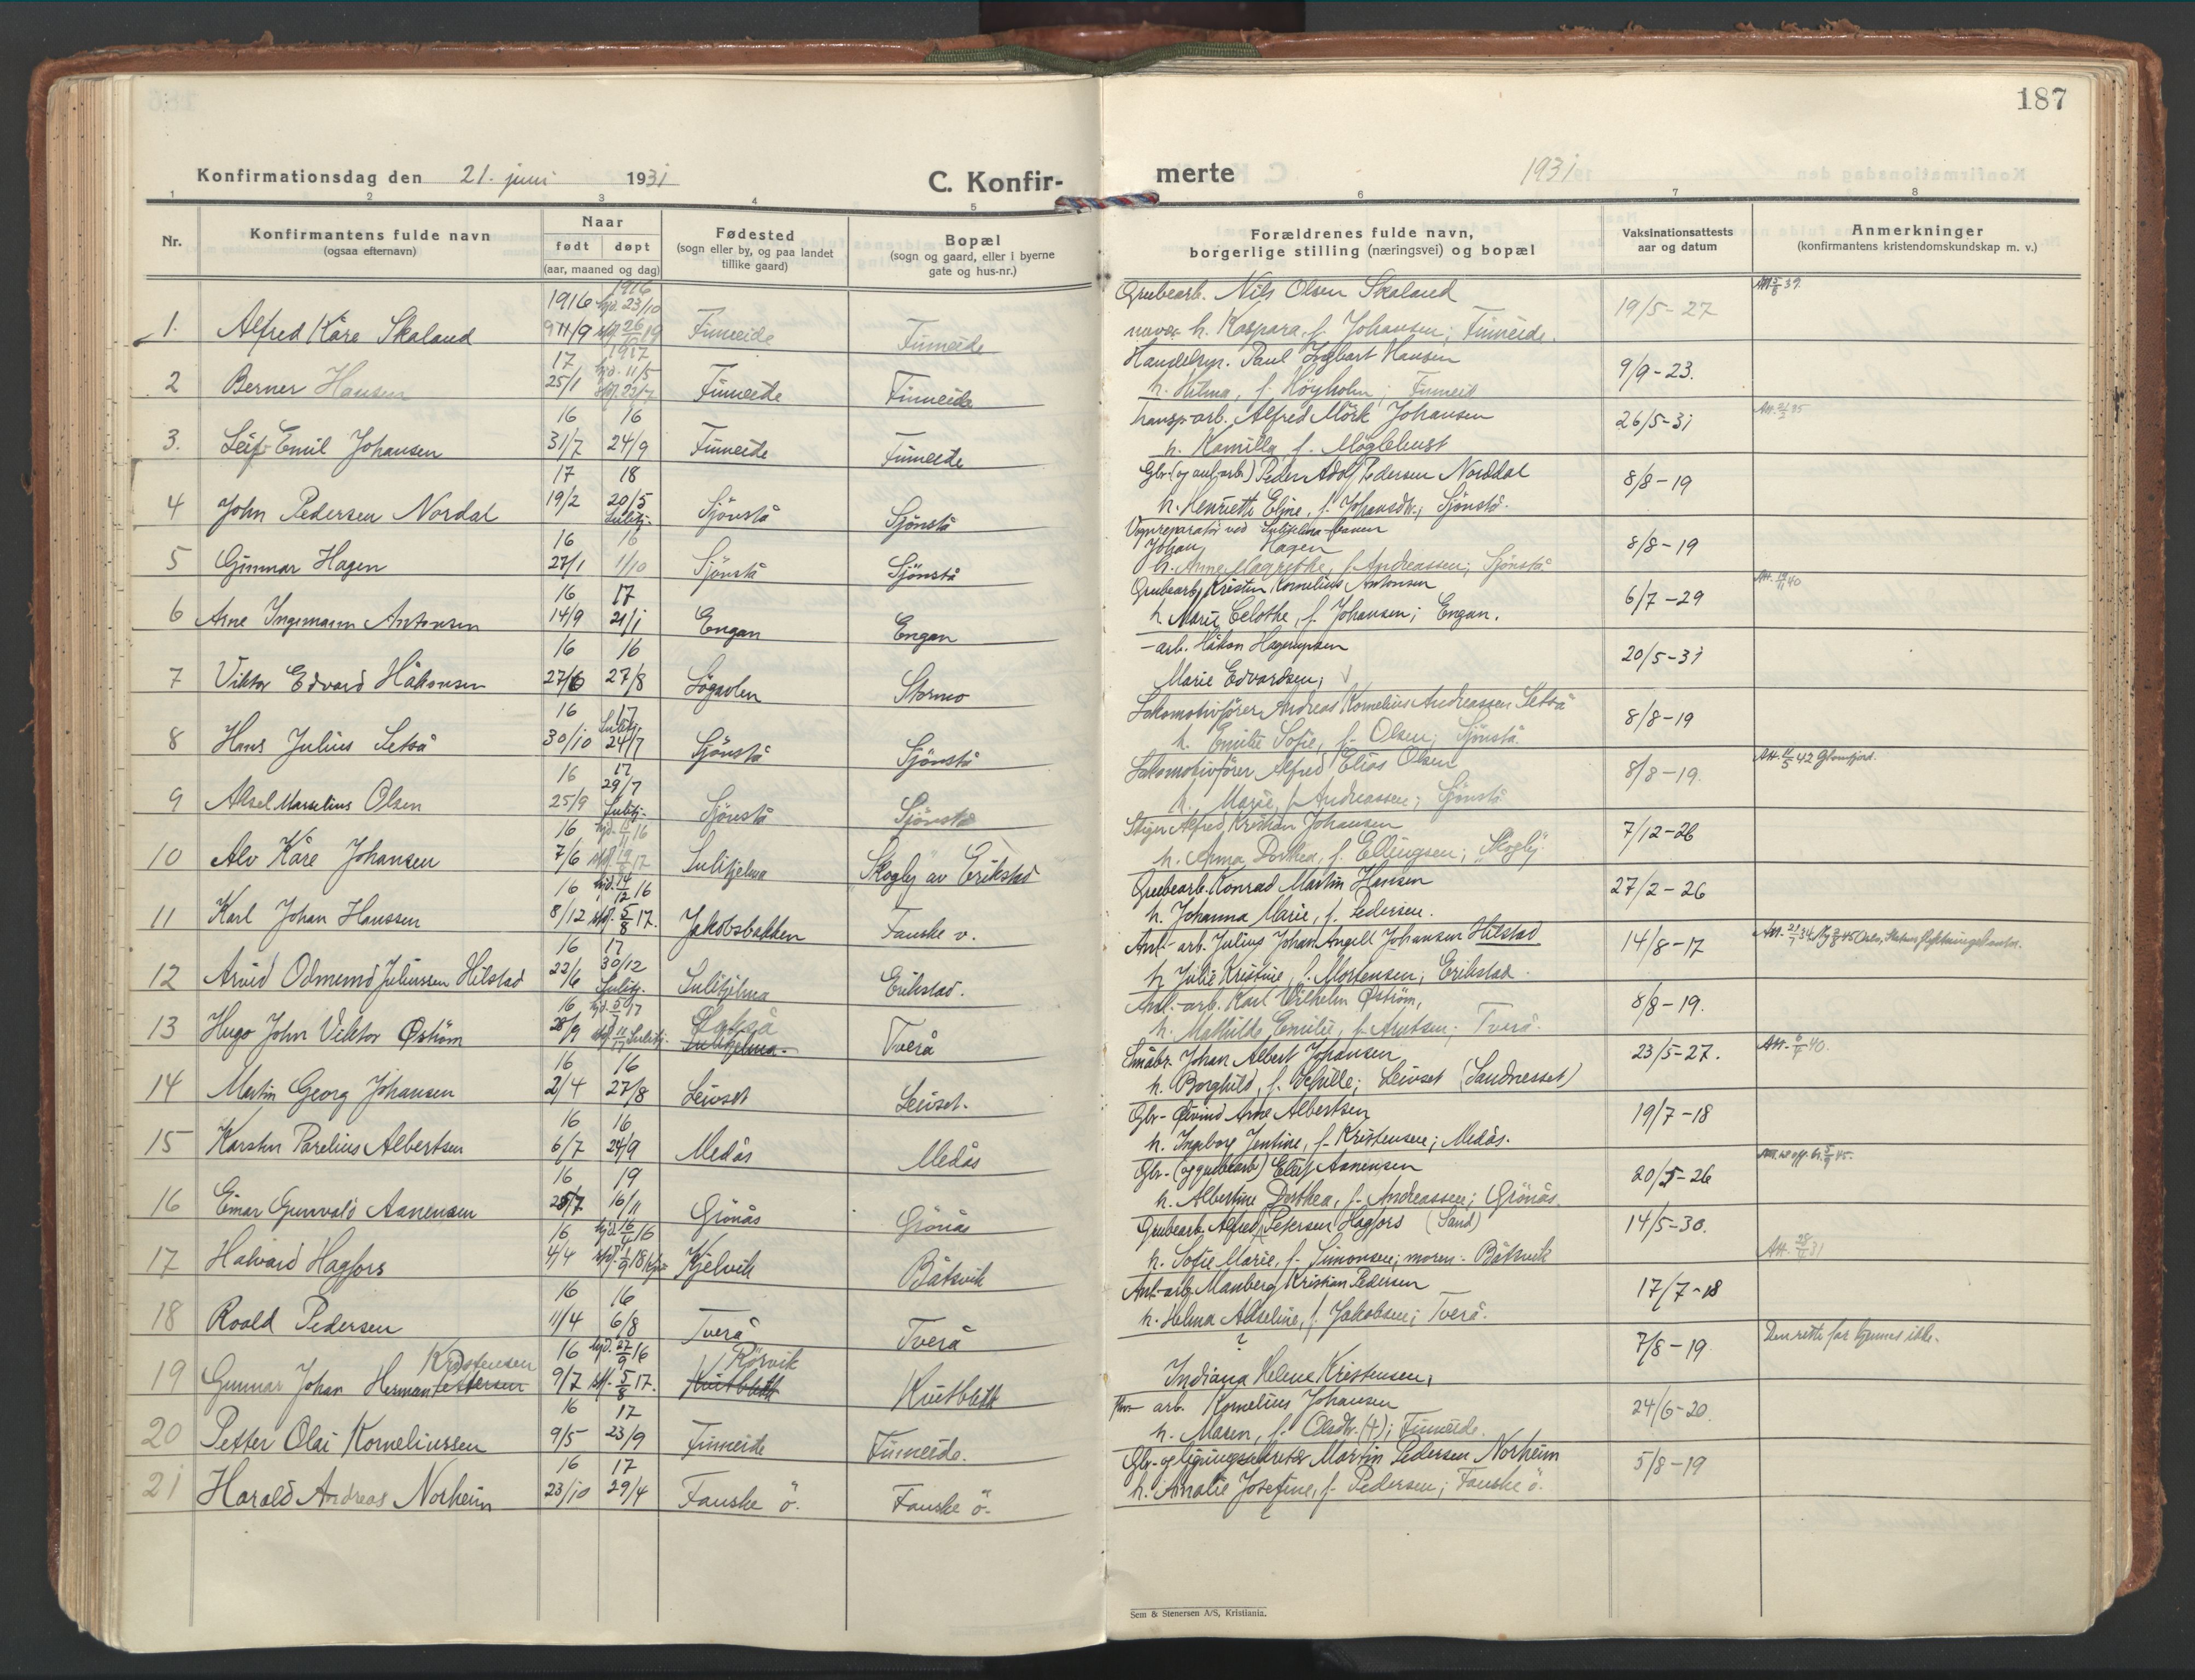 187
Konfirmationsdag den 21. juni 1931
C. Konfir-
1 2 3 4 5
Nr.
Konfirmantens fulde navn
(ogsaa efternavn)
Naar
født døpt
(aar, maaned og dag)
Fødested
(sogn eller by, og paa landet
tillike gaard)
Bopæl
(sogn og gaard, eller i byerne
gate og hus-nr.)
1916 1916 hjd. 23/10
1. Alfred Kåre Skaland 11/9 Finneide Finneide
17 1917 hjd. 11/5
2 Berner Hansen 25/1 Finneide Finneide
16 16
3. Leif Emil Johansen 31/7 24/9 Finneide Finneide
17 18
4 John Pedersen Nordal 19/2 20/5 Sulitj. Sjönstå Sjönstå
16 16
5 Gunnar Hagen 27/1 1/10 Sjönstå Sjönstå
16 17
6 Arne Ingemann Antonsen 14/9 21/1 Engan Engan
16 16
7 Viktor Edvard Håkonsen 27/6 27/8 Løgavlen Stormo
16 17 Sulitj.
8 Hans Julius Setså 30/10 24/7 Sjönstå Sjönstå
16 17 29/7
9 Aksel Marselius Olsen 25/9 Sulitj. Sjönstå Sjönstå
16 hjd. 16
10 Alv Kåre Johansen 7/6 17 Sulitjelma "Skogly" av Erikstad
16 hjd. 14/12 16
11 Karl Johan Hanssen 8/12 stf. 5/8 17. Jakobsbakken Fauske v.
16 17
12 Arvid Odmund Juliussen Hilstad 22/6 30/12 Sulitj. Sulitjelma Erikstad.
16 hjd. 5/7 17
13 Hugo John Viktor Øström 28/9 Sulitj. Sulitjelma. Tverå
16 16
14 Martin Georg Johansen 2/4 27/8 Leivset Leivset.
16 16
15 Karsten Parelius Albertsen 6/7 24/9 Medås Medås
16 19
16 Einar Gunvald Aanensen 25/7 16/11 Grönås Grönås
16 hjd. 16
17 Halvard Hagfors 4/4 18 Kjelvik Båtsvik
16 16
18 Roald Pedersen 11/4 6/8 Tverå Tverå
Kristensen 16 hjd. 27/9 16 Rörvik
19 Gunnar Johan Herman Pettersen 9/7 stf. 5/8 17. Kistblett Kistblett
16 17
20 Petter Olai Korneliussen 9/5 23/9 Finneide Finneide.
16 17
21 Harald Andreas Norheim 23/10 29/4 Fauske ö. Fauske ö.
merte 1931
6 7 8
Forældrenes fulde navn,
borgerlige stilling (næringsvei) og bopæl
Vaksinationsattests
aar og datum
Anmerkninger
(konfirmantens kristendomskundskap m. v.)
Grubearb. Nils Olsen Skaland 19/5-27
h. Kaspara, f. Johansen; Finneide.
Handelsm. Paul Ingbart Hansen 9/9-23.
h. Hilma, f. Höyholm; Finneid
transp-arb. Alfred Mörk Johansen 26/5-31
h. Kamilla, f. Möglehust
Gbr. (og anl.arb.) Peder Adolf Pedersen Norddal 8/8-19
h. Henriette Eline, f. Johansdtr.; Sjönstå.
Vognreparatør ved Sulitjelma-banen
Johan Hagen 8/8-19
h. Anne Magrethe, f. Andreassen; Sjönstå
Grubearb. Kristen Kornelius Antonsen 6/7-29
h. Marie Celothe, f. Johansen; Engan.
- arb. Håkon Hagerupsen 20/5-31
Marie Edvardsen;
Lokomotivfører Andreas Kornelius Andreassen Setså 8/8-19
h. Emilie Sofie, f. Olsen; Sjönstå.
Lokomotivfører Alfred Elias Olsen 8/8-19. Att. 5 42 Glomfjord.
h. Marie, f. Andreassen; Sjönstå
Stiger Alfred Kristian Johansen 7/12-26
h. Anna Dorthea, f. Ellingsen; "Skogly".
Grubearb. Konrad Martin Hansen 27/2-26
h. Johanna Marie, f. Pedersen.
Anl.-arb. Julius Johan Angell Johansen Hilstad 14/8-17
h. Julie Kristine, f. Mortensen; Erikstad.
Anl.-arb. Karl Vilhelm Øström, 8/8-19.
h. Mathilde Emilie, f. Arntsen; Tverå.
Småbr. Johan Albert Johansen 23/5-27. Att. 40.
h. Borghild, f. Schille; Leivset (Sandnesset)
Gbr. Øivind Arne Albertsen 19/7-18
h. Ingeborg Jentine, f. Kristensen; Medås.
Gbr. (og grubearb) Eluf Aanensen 20/5-26
h. Albertine Dorthea, f. Andreassen; Grönås.
Grubearb. Alfred Petersen Hagfors (Sand) 14/5-30.
h. Sofie Marie, f. Simonsen; moren: Båtsvik
Anl-arb. Manberg Kristian Pedersen 17/7-18
h. Helma Akseline, f. Jakobsen; Tverå.
? 7/8-19. Den rette far kjennes ikke.
Indiana Helene Kristensen,
arb. Kornelius Johansen 24/6-20.
h. Maren, f. Olsdtr. (†); Finneide.
Gbr- og ligningssekretær Martin Pedersen Norheim 5/8-19
h. Amalie Josefine, f. Pedersen; Fauske ö.
Sem & Stenersen A/S, Kristiania.